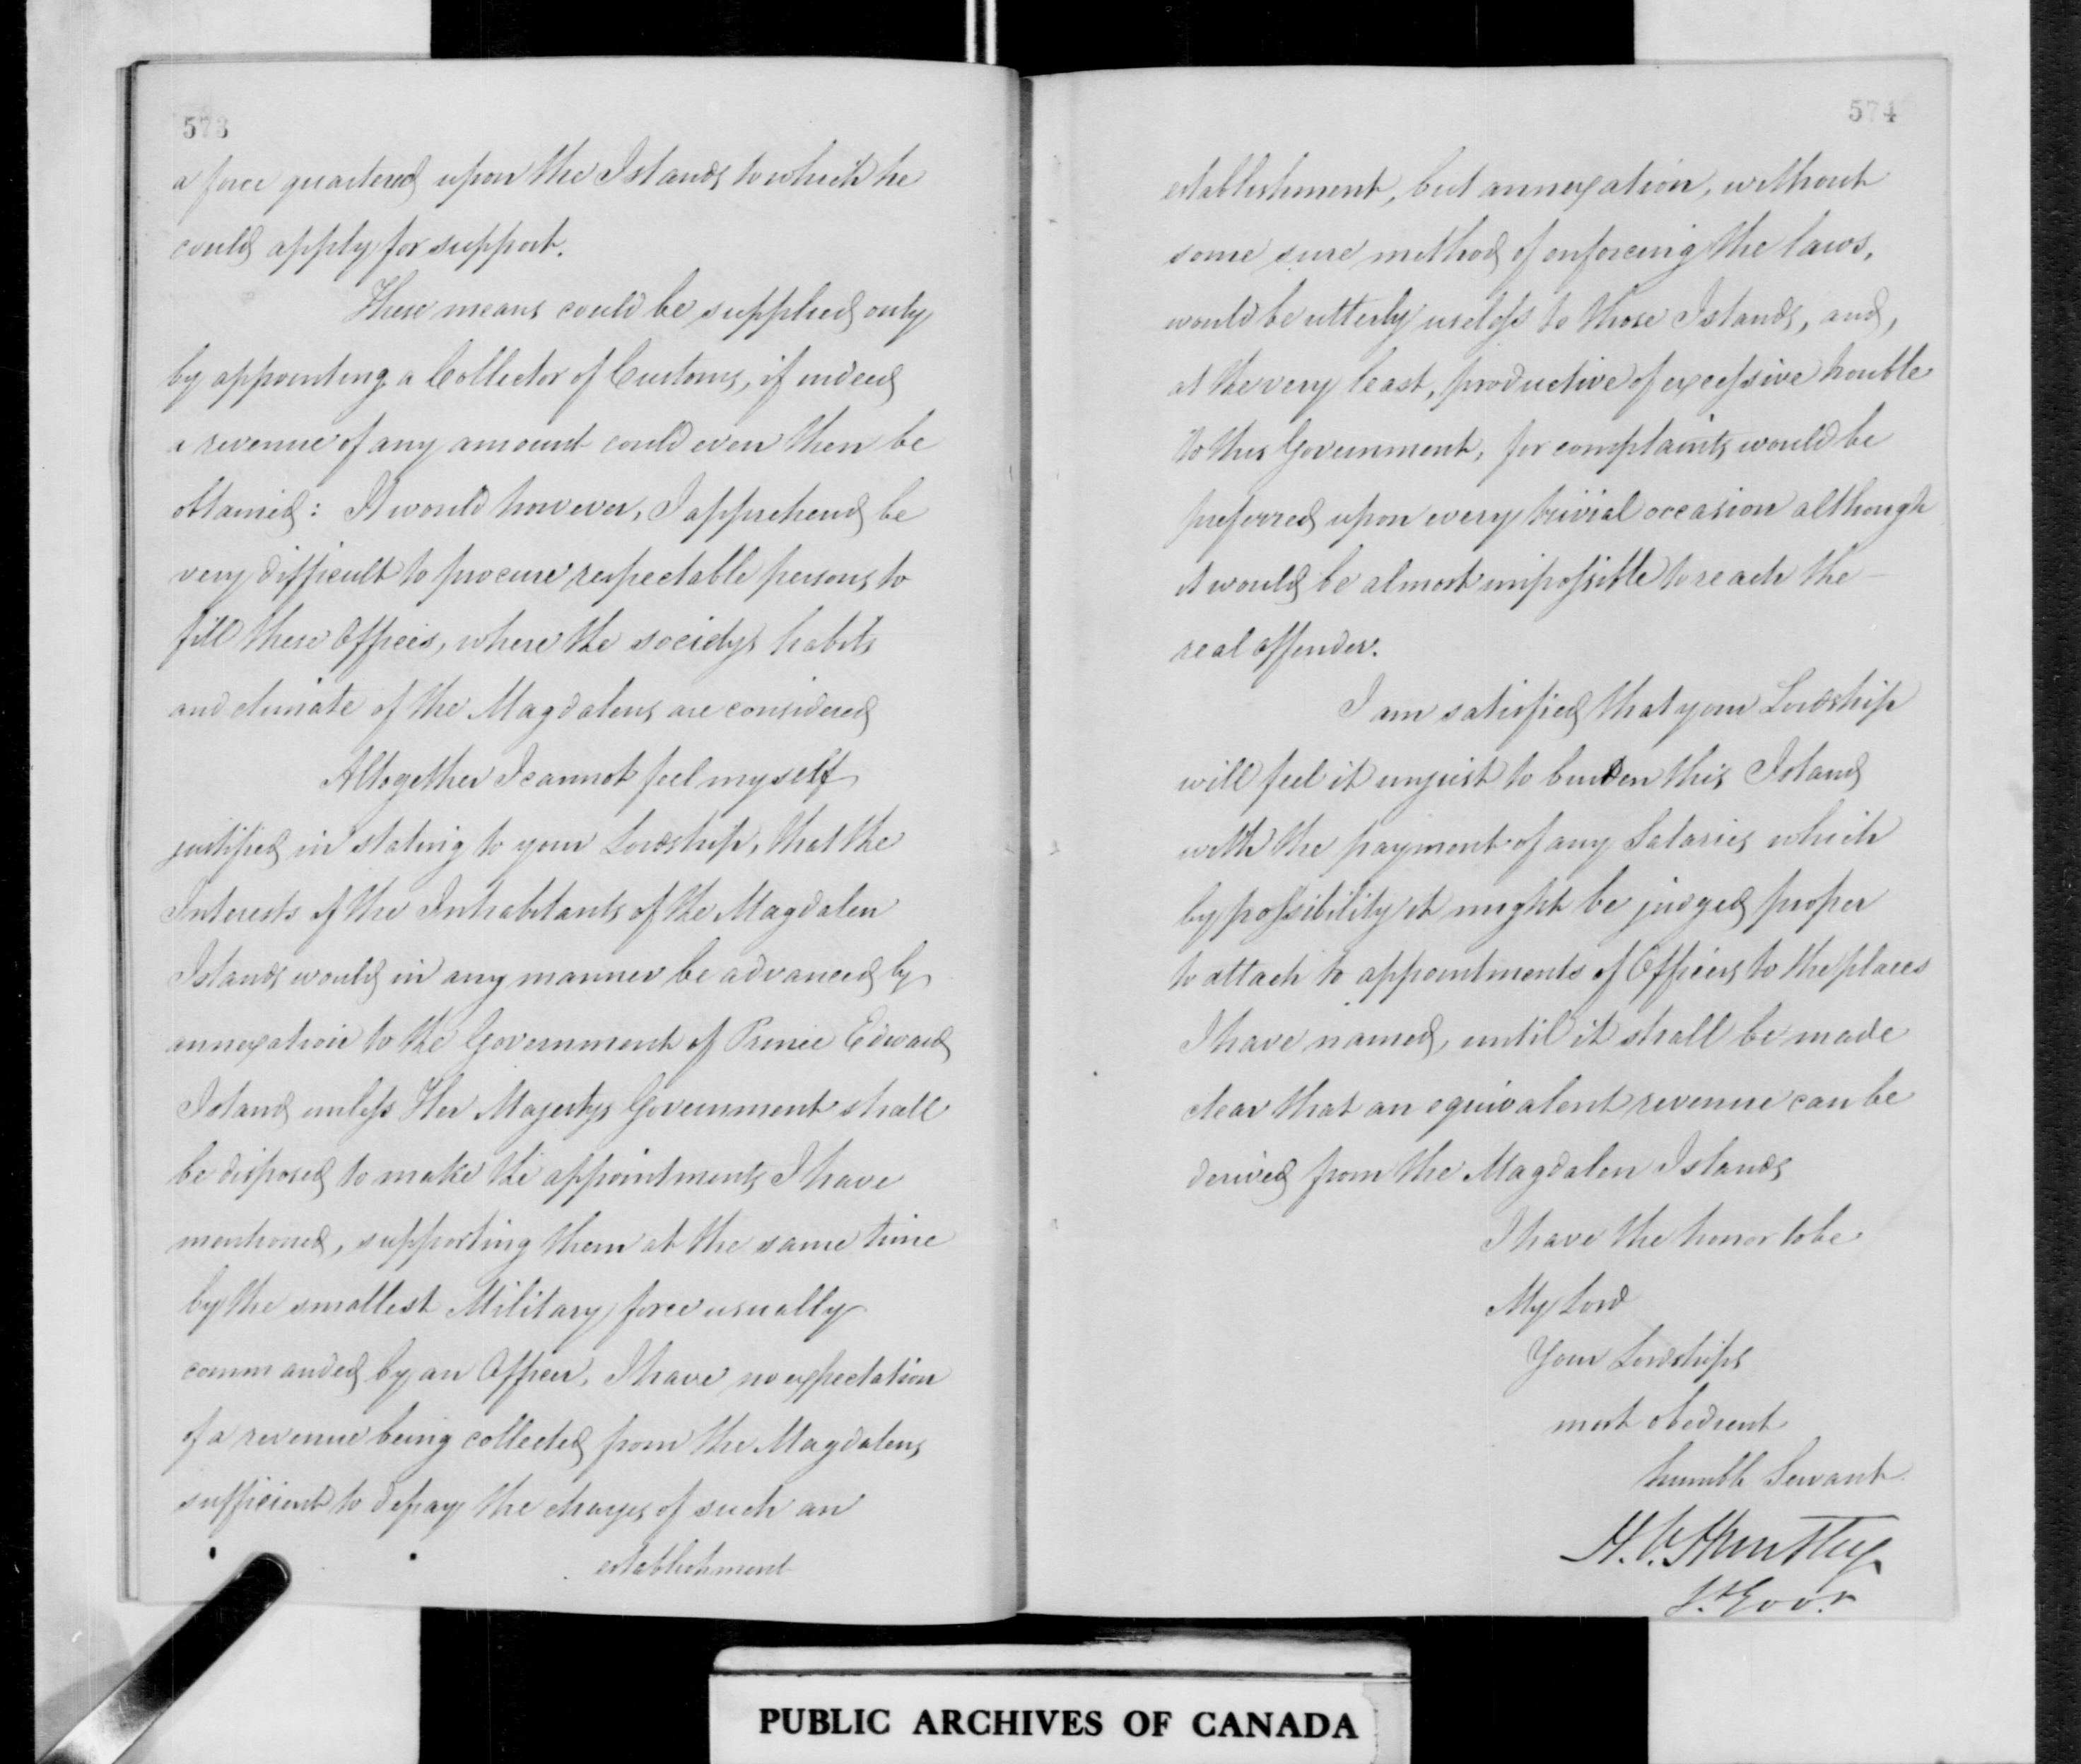 573
a force quartered upon the Islands to which he
could apply for support.
These means could be supplied only
by appointing a Collector of Customs, if indeed
a revenue of any amount could even then be
obtained: It would however, I apprehend be
very difficult to procure respectable persons to
fill these Offices, where the society, habits
and climate of the Magdalens are considered
Altogether I cannot feel myself
justified in stating to your Lordship, that the
Interests of the Inhabitants of the Magdalen
Islands would in any manner be advanced by
annexation to the Government of Prince Edward
Island unless Her Majestys Government shall
be disposed to make the appointments I have
mentioned, supporting them at the same time
by the smallest Military force usually
commanded by an Officer. I have no expectation
of a revenue being collected from the Magdalens
sufficient to defray the charges of such an
establishment
574
establishment, but annexation, without
some sure method of enforcing the laws,
would be utterly useless to those Islands, and,
at the very least, productive of excessive trouble
to this Government, for complaints would be
preferred upon every trivial occasion although
it would be almost impossible to reach the
real offender.
I am satisfied that your Lordship
will feel it unjust to burden this Island
with the payment of any Salaries which
by possibility it might be judged proper
to attach to appointments of Officers to the places
I have named, until it shall be made
clear that an equivalent revenue can be
derived from the Magdalen Islands
I have the honor to be
My Lord
Your Lordships
most obedient
humble Servant
H. V. Huntley
Lt Govr.
PUBLIC ARCHIVES OF CANADA